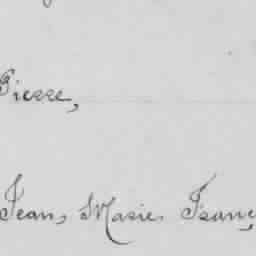 Pierre,
Jean, Marie, Franç